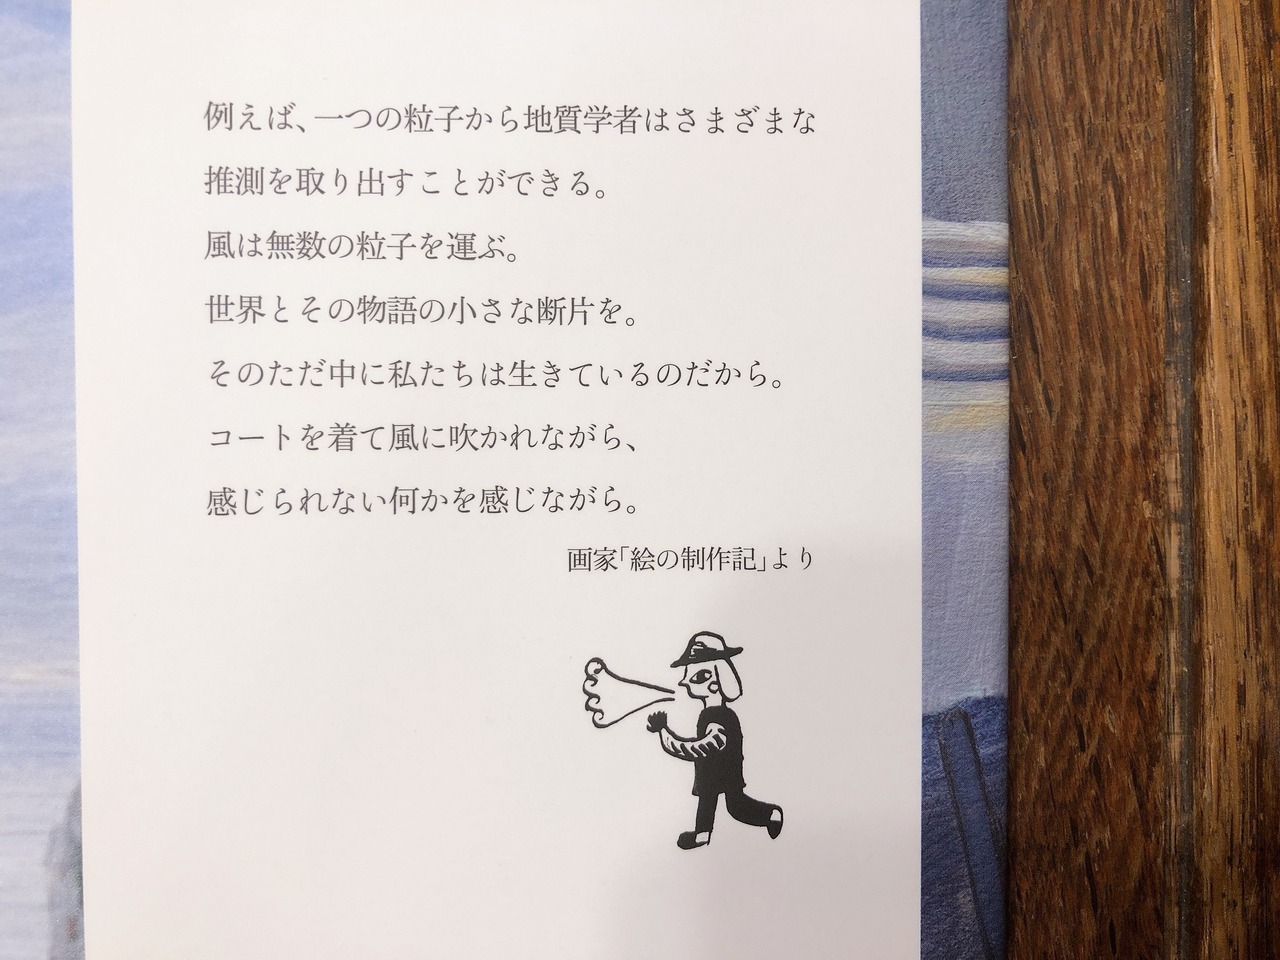 例えば、一つの粒子から地質学者はさまざまな
推測を取り出すことができる。
風は無数の粒子を運ぶ。
世界とその物語の小さな断片を。
そのただ中に私たちは生きているのだから。
コートを着て風に吹かれながら、
感じられない何かを感じながら。
画家「絵の制作記」より